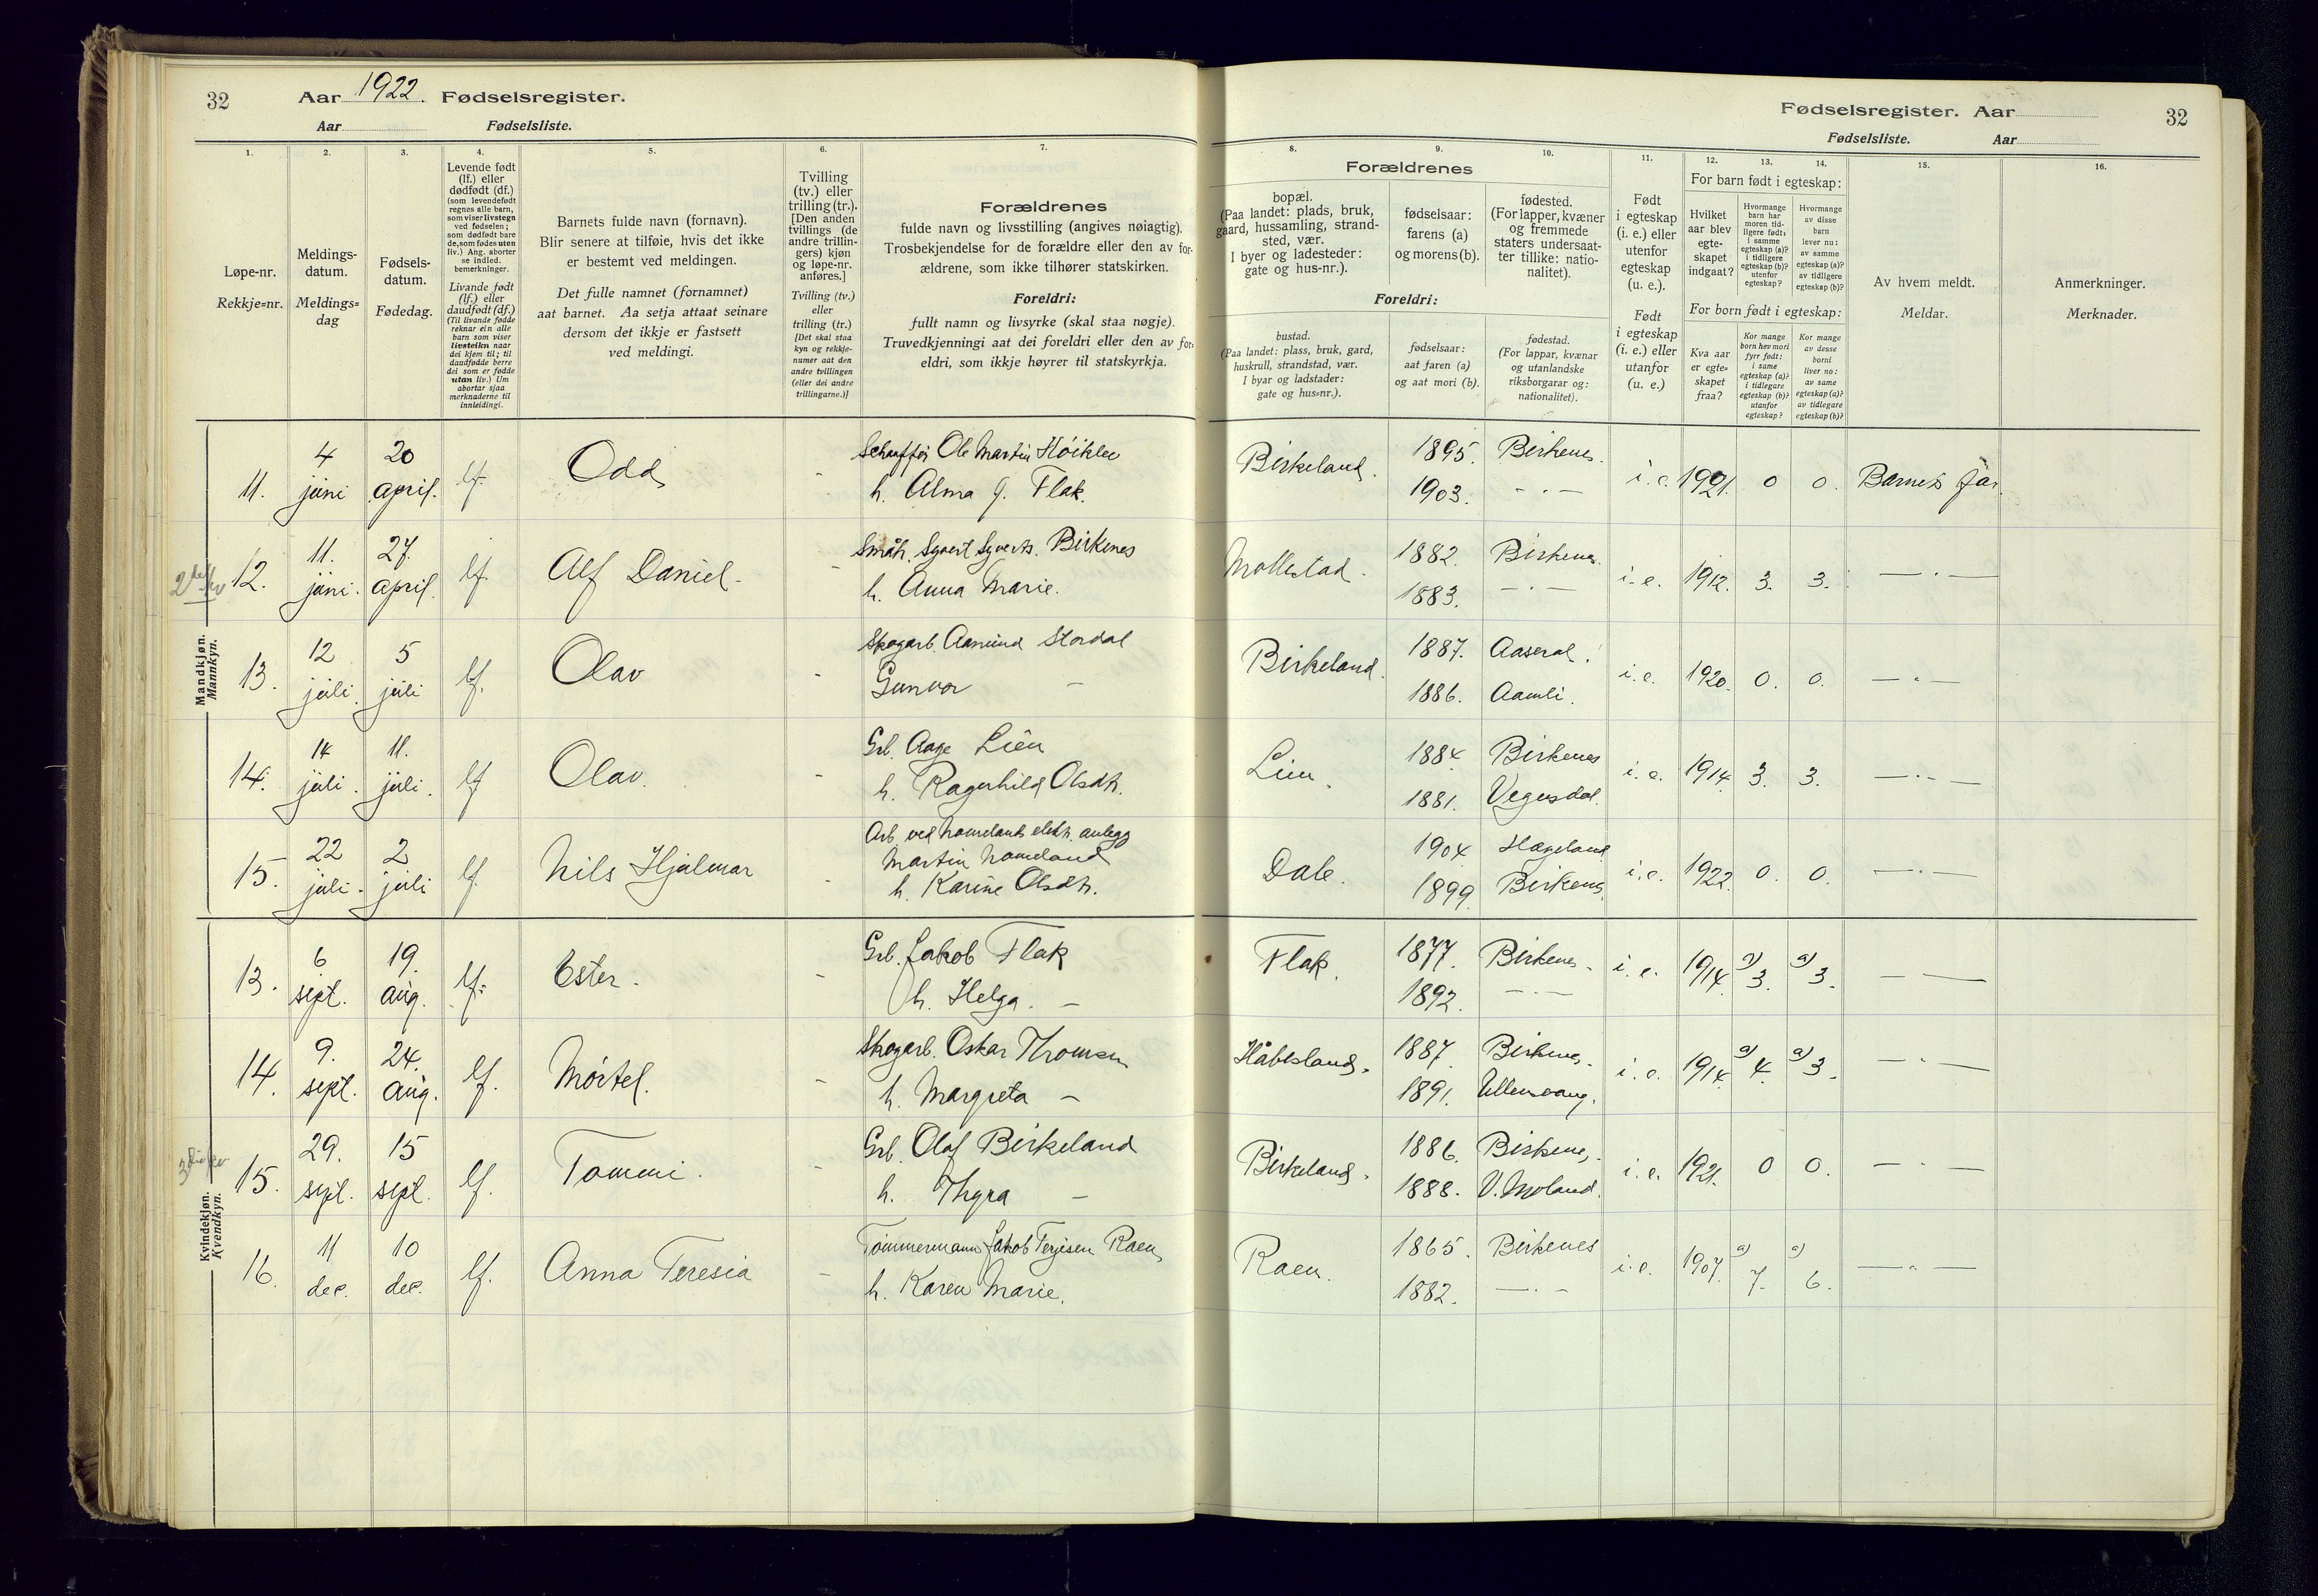 32 Aar 1922. Fødselsregister.
Aar Fødselsliste.
Fødselsregister. Aar 32
Fødselsliste. Aar
1. 2. 3. 4. 5. 6. 7. 8. 9. 10. 11. 12. 13. 14. 15. 16.
Løpe-nr.
Rekkje=nr.
Meldings-
datum.
Meldings=
dag
Fødsels-
datum.
Fødedag.
Levende født
(lf.) eller
dødfødt (df.)
(som levendefødt
regnes alle barn,
som viser livstegn
ved fødselen;
som dødfødt bare
de, som fødes uten
liv.) Ang. aborter
se indled.
bemerkninger.
Livande født
(lf.) eller
daudfødt (df.)
(Til livande fødde
reknar ein alle
barn som viser
livsteikn naar
dei kjem til; til
daudfødde berre
dei som er fødde
utan liv.) Um
abortar sjaa
merknaderne til
innleidingi.
Barnets fulde navn (fornavn).
Blir senere at tilføie, hvis det ikke
er bestemt ved meldingen.
Det fulle namnet (fornamnet)
aat barnet. Aa setja attaat seinare
dersom det ikkje er fastsett
ved meldingi.
Tvilling
(tv.) eller
trilling (tr.).
[Den anden
tvillings (de
andre trillin-
gers) kjøn
og løpe-nr.
anføres.]
Tvilling (tv.)
eller
trilling (tr.)
[Det skal staa
kyn og rekkje-
numer aat den
andre tvillingen
(eller dei andre
trillingarne.)]
Forældrenes
fulde navn og livsstilling (angives nøiagtig).
Trosbekjendelse for de forældre eller den av for-
ældrene, som ikke tilhører statskirken.
Foreldri:
fullt namn og livsyrke (skal staa nøgje).
Truvedkjenningi aat dei foreldri eller den av for-
eldri, som ikkje høyrer til statskyrkja.
Forældrenes
bopæl.
(Paa landet: plads, bruk,
gaard, hussamling, strand-
sted, vær.
I byer og ladesteder:
gate og hus-nr.).
fødselsaar:
farens (a)
og morens (b).
fødested.
(For lapper, kvæner
og fremmede
staters undersaat-
ter tillike: natio-
nalitet).
Foreldri:
bustad.
(Paa landet: plass, bruk, gard,
huskrull, strandstad, vær.
I byar og ladstader:
gate og hus=nr.).
fødselsaar:
aat faren (a)
og aat mori (b).
fødestad.
(For lappar, kvænar
og utanlandske
riksborgarar og:
nationalitet).
Født
i egteskap
(i. e.) eller
utenfor
egteskap
(u. e.).
Født
i egteskap
(i. e.) eller
utanfor
(u. e.)
For barn født i egteskap:
Hvilket
aar blev
egte-
skapet
indgaat?
Hvormange
barn har
moren tid-
ligere født:
i samme
egteskap (a)?
i tidligere
egteskap (b)?
utenfor
egteskap?
Hvormange
av disse
barn
lever nu:
av samme
egteskap (a)?
av tidligere
egteskap (b)?
For born født i egteskap:
Kva aar
er egte=
skapet
fraa?
Kor mange
born hev mori
fyrr født:
i same
egteskap (a)?
i tidlegare
egteskap (b)?
utanfor
egteskap?
Kor mange
av desse
borni
liver no:
av same
egteskap (a)?
av tidlegare
egteskap (b)?
Av hvem meldt.
Meldar.
Anmerkninger.
Merknader.
Mandkjøn.
Mannkyn.
11. 4 juni 20 april. lf. Odd - Schauffør Ole Martin Høiklev
h. Alma G. Flak. Birkeland. 1895. 1903. Birkenes. — " — i. e. 1921. 0 0. Barnets far.
12. 11. juni. 27. april. lf. Alf Daniel. - Småbr. Syvert Syverts. Birkenes
h. Anna Marie. Mollestad. 1882. 1883. Birkenes. — " — i. e. 1912. 3. 3. — " —
13. 12 juli. 5 juli lf. Olav - Skogarb. Aanund Stordal
Gunvor — Birkeland. 1887. 1886. Aaseral. Aamli. i. e. 1920. 0. 0. — " —
14. 14 juli. 11. juli. lf Olav. - Grb. Aage Lien
h. Ragnhild Olsdtr. Lien. 1884 1881. Birkenes Vegusdal. i. e. 1914. 3. 3. — " —
15. 22 juli. 2 juli lf. Nils Hjalmar - Arb. ved Nomelands elektr. anlegg
Martin Nomeland
h. Karine Olsdtr. Dale. 1904 1899. Hægeland Birkenes. i. e. 1922. 0. 0. — " —
Kvindekjøn.
Kvendkyn.
13. 6 sept. 19. aug. lf. Ester. - Grb. Jakob Flak
h. Helga. — Flak. 1877. 1892. Birkenes. — " — i. e. 1914 a) 3. a) 3. — —
14. 9. sept. 24. aug. lf. Mørtel. - Skogarb. Oskar Thomsen
h. Margreta — Håbesland. 1887. 1891. Birkenes. Ullensvang. i. e. 1914. a) 4. a) 3. — " —
15. 29. sept. 15 sept. lf. Tommi. - Grb. Olaf Birkeland
h. Thyra — Birkeland. 1886. 1888. Birkenes. V. Moland. i. e. 1921. 0 0. — " —
16. 11 dec. 10 dec. lf. Anna Teresia - Tømmermann Jakob Terjesen Raen
h. Karen Marie. Raen. 1865. 1882. Birkenes — " — i. e. 1907. a) 7. a) 6. — " —